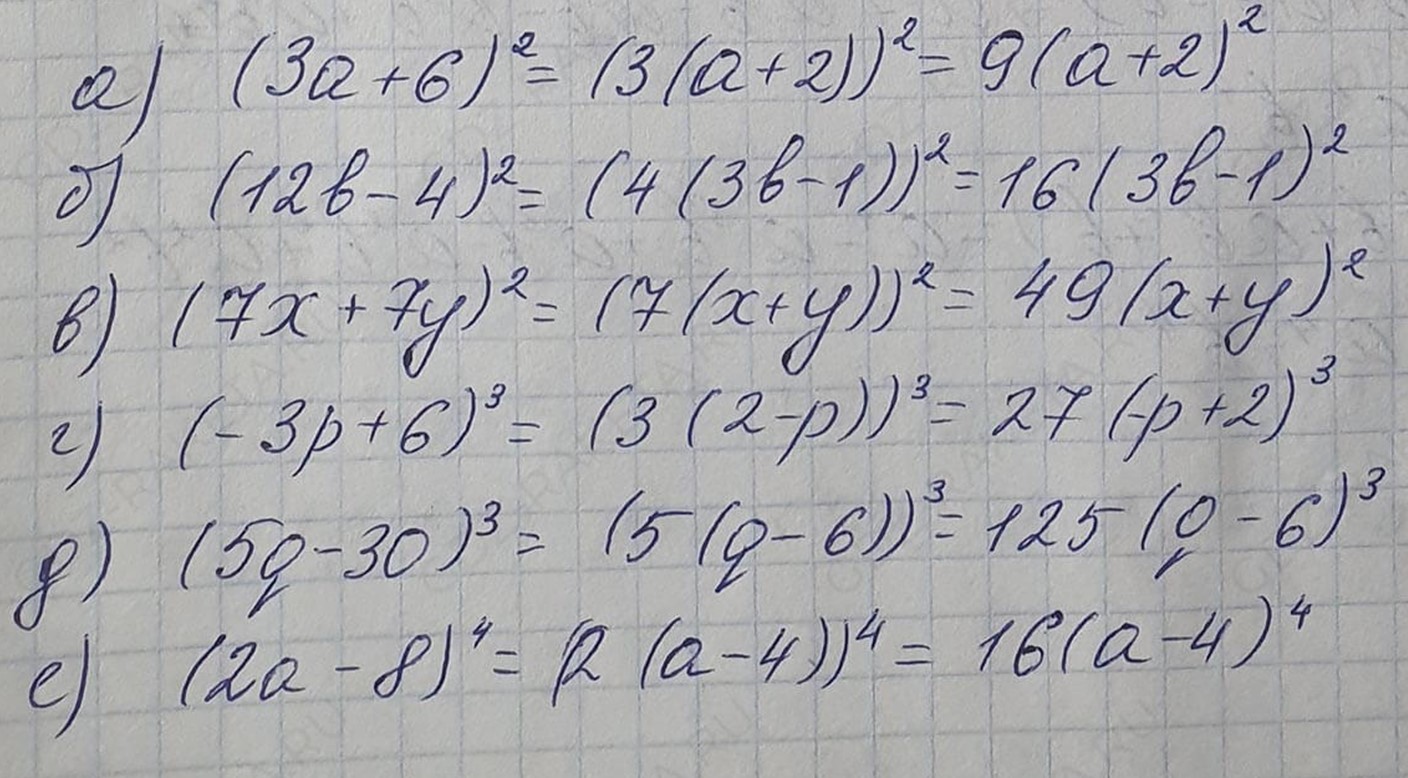 а) (3a+6)² = (3(a+2))² = 9(a+2)²
б) (12b-4)² = (4(3b-1))² = 16(3b-1)²
в) (7x+7y)² = (7(x+y))² = 49(x+y)²
г) (-3p+6)³ = (3(2-p))³ = 27(-p+2)³
д) (5q-30)³ = (5(q-6))³ = 125(q-6)³
е) (2a-8)⁴ = (2(a-4))⁴ = 16(a-4)⁴